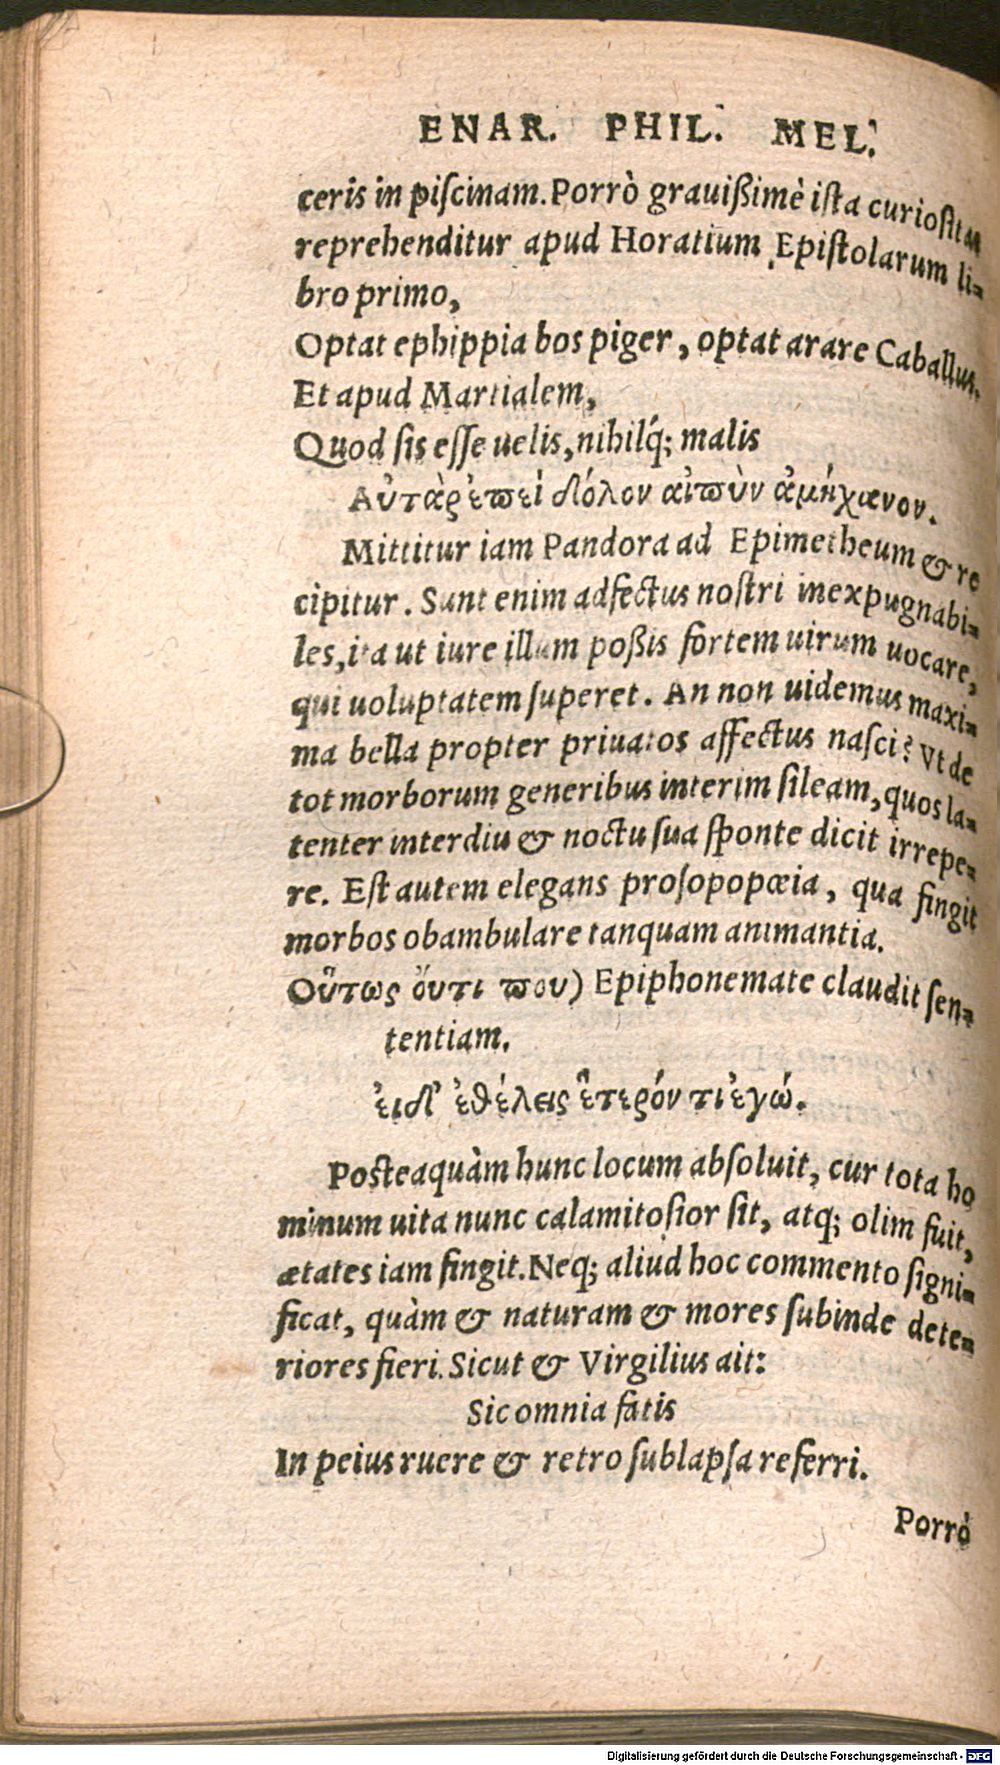 ENAR. PHIL. MEL.
ceris in piſcinam. Porrò grauißimè iſta curioſitas
reprehenditur apud Horatium Epiſtolarum li-
bro primo,
Optat ephippia bos piger, optat arare Caballus.
Et apud Martialem,
Quod ſis eſſe uelis, nihilq́; malis
Αὐτὰρ ἐπεὶ δόλον αἰπὺν ἀμήχανον.
Mittitur iam Pandora ad Epimetheum & re
cipitur. Sunt enim adfectus noſtri inexpugnabi-
les, ita ut iure illum poßis fortem uirum uocare,
qui uoluptatem ſuperet. An non uidemus maxi-
ma bella propter priuatos affectus naſci? Vt de
tot morborum generibus interim ſileam, quos la-
tenter interdiu & noctu ſua ſponte dicit irrepe-
re. Eſt autem elegans proſopopœia, qua fingit
morbos obambulare tanquam animantia.
Οὕτως ὄυτι που) Epiphonemate claudit ſen-
tentiam.
ἐι δ' ἐθέλεις ἕτερόν τι ἐγώ.
Poſteaquàm hunc locum abſoluit, cur tota ho
minum uita nunc calamitoſior ſit, atq; olim fuit,
ætates iam fingit. Neq; aliud hoc commento ſigni-
ficat, quàm & naturam & mores ſubinde dete-
riores fieri. Sicut & Virgilius ait:
Sic omnia fatis
In peius ruere & retro ſublapſa referri.
Porrò
Digitalisierung gefördert durch die Deutsche Forschungsgemeinschaft - DFG